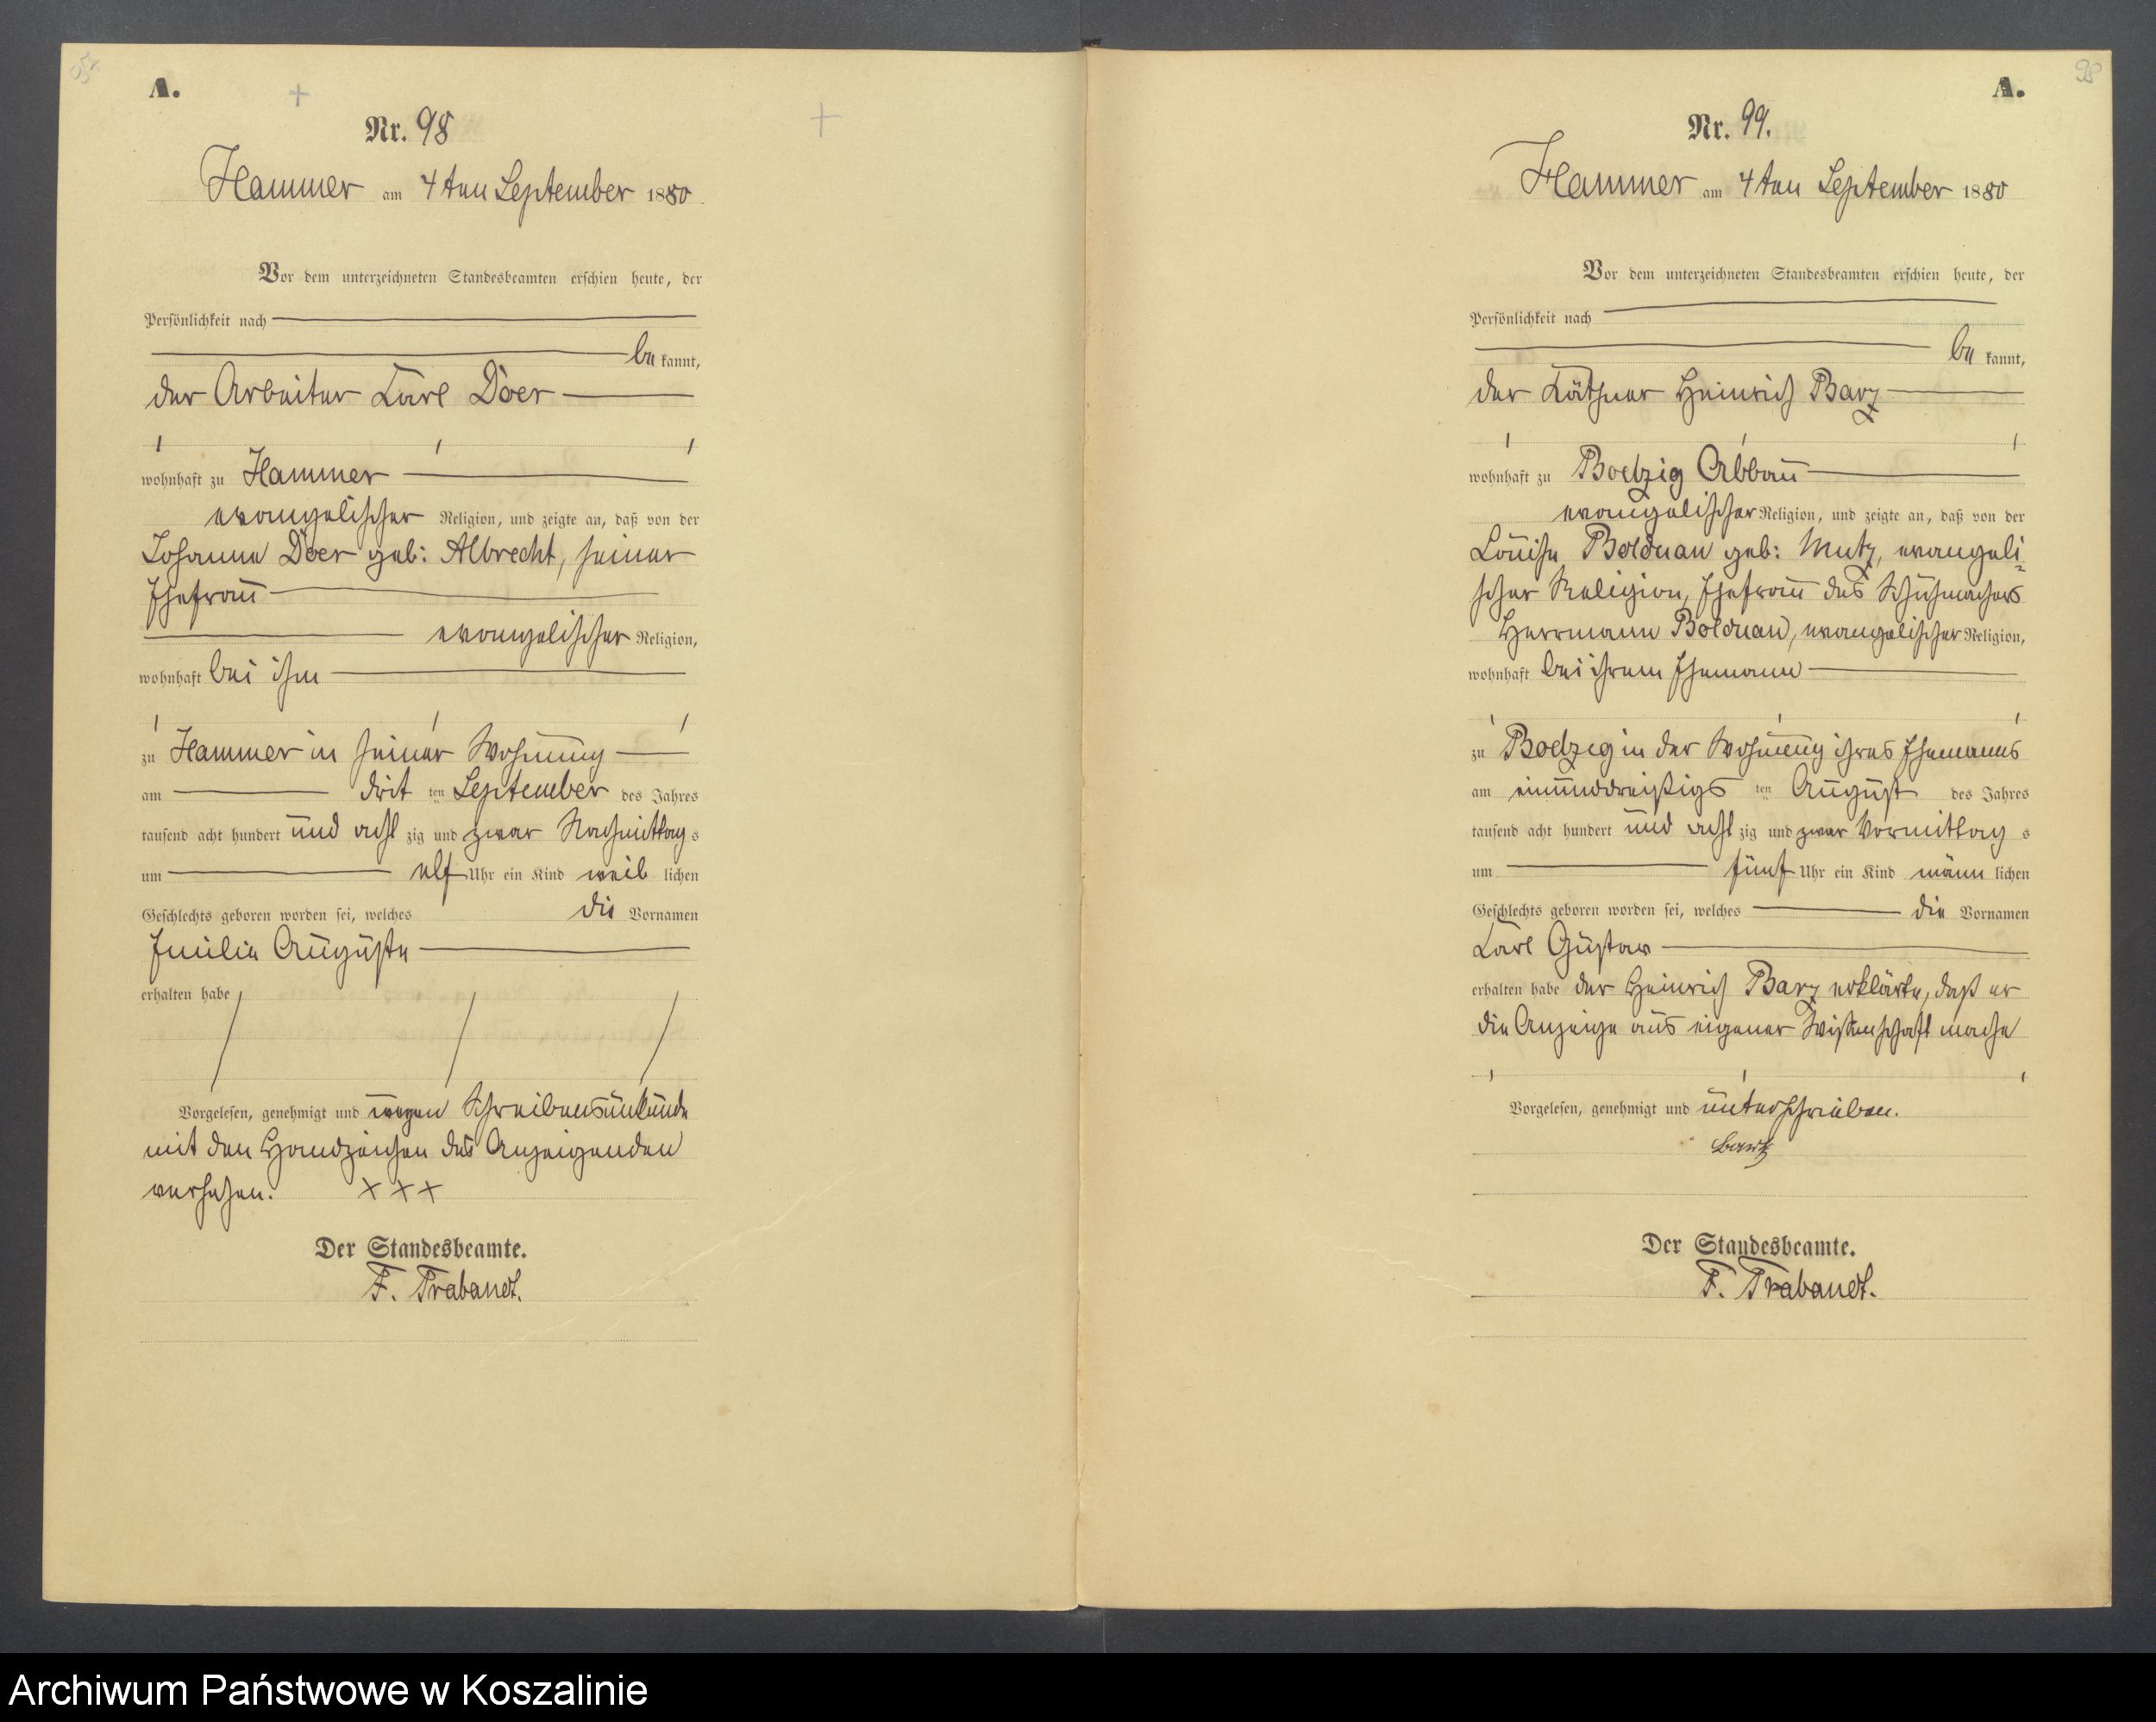 A.
Nr. 98
Hammer am 4ten September 1880.
Vor dem unterzeichneten Standesbeamten erschien heute, der
Persönlichkeit nach
be kannt,
der Arbeiter Carl Doer
wohnhaft zu Hammer
evangelischer Religion, und zeigte an, daß von der
Johanne Doer geb: Albrecht, seiner
Ehefrau
evangelischer Religion,
wohnhaft bei ihm
zu Hammer in seiner Wohnung
am drit ten September des Jahres
tausend acht hundert und acht zig und zwar Nachmittag s
um elf Uhr ein Kind weib lichen
Geschlechts geboren worden sei, welches die Vornamen
Emilie Auguste
erhalten habe
Vorgelesen, genehmigt und wegen Schreibensunkunde
mit den Handzeichen des Anzeigenden
versehen. + + +
Der Standesbeamte.
F. Trabandt.
98
A.
Nr. 99.
Hammer am 4ten September 1880
Vor dem unterzeichneten Standesbeamten erschien heute, der
Persönlichkeit nach
be kannt,
der Käthner Heinrich Barz
wohnhaft zu Boelzig Abbau
evangelischer Religion, und zeigte an, daß von der
Louise Bolduan geb: Mutz, evangeli=
scher Religion, Ehefrau des Schuhmachers
Herrmann Bolduan, evangelischer Religion,
wohnhaft bei ihrem Ehemann
zu Boelzig in der Wohnung ihres Ehemanns
am einunddreißigs ten August des Jahres
tausend acht hundert und acht zig und zwar Vormittag s
um fünf Uhr ein Kind männ lichen
Geschlechts geboren worden sei, welches die Vornamen
Carl Gustav
erhalten habe der Heinrich Barz erklärte, daß er
die Anzeige aus eigener Wissenschaft mache
Vorgelesen, genehmigt und unterschrieben.
Bartz
Der Standesbeamte.
F. Trabandt.
Archiwum Państwowe w Koszalinie